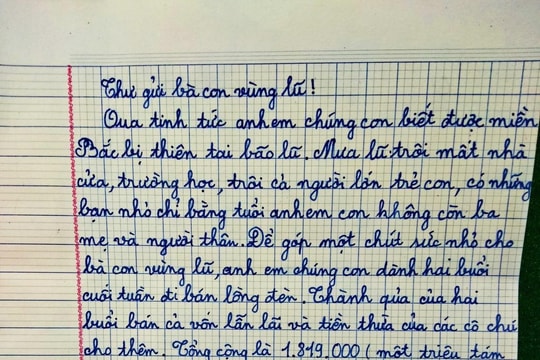 Thư gửi bà con vùng lũ!
Qua tinh tức anh em chúng con biết được miền
Bắc bị thiên tai bão lũ. Mưa lũ trôi mất nhà
cửa, trường học, trôi cả người lớn trẻ con, có những
bạn nhỏ chỉ bằng tuổi anh em con không còn ba
mẹ và người thân. Để góp một chút sức nhỏ cho
bà con vùng lũ, anh em chúng con dành hai buổi
cuối tuần đi bán lồng đèn. Thành quả của hai
buổi bán cả vốn lẫn lãi và tiền thừa của các cô chú
cho thêm. Tổng cộng là 1.819.000 (một triệu tám